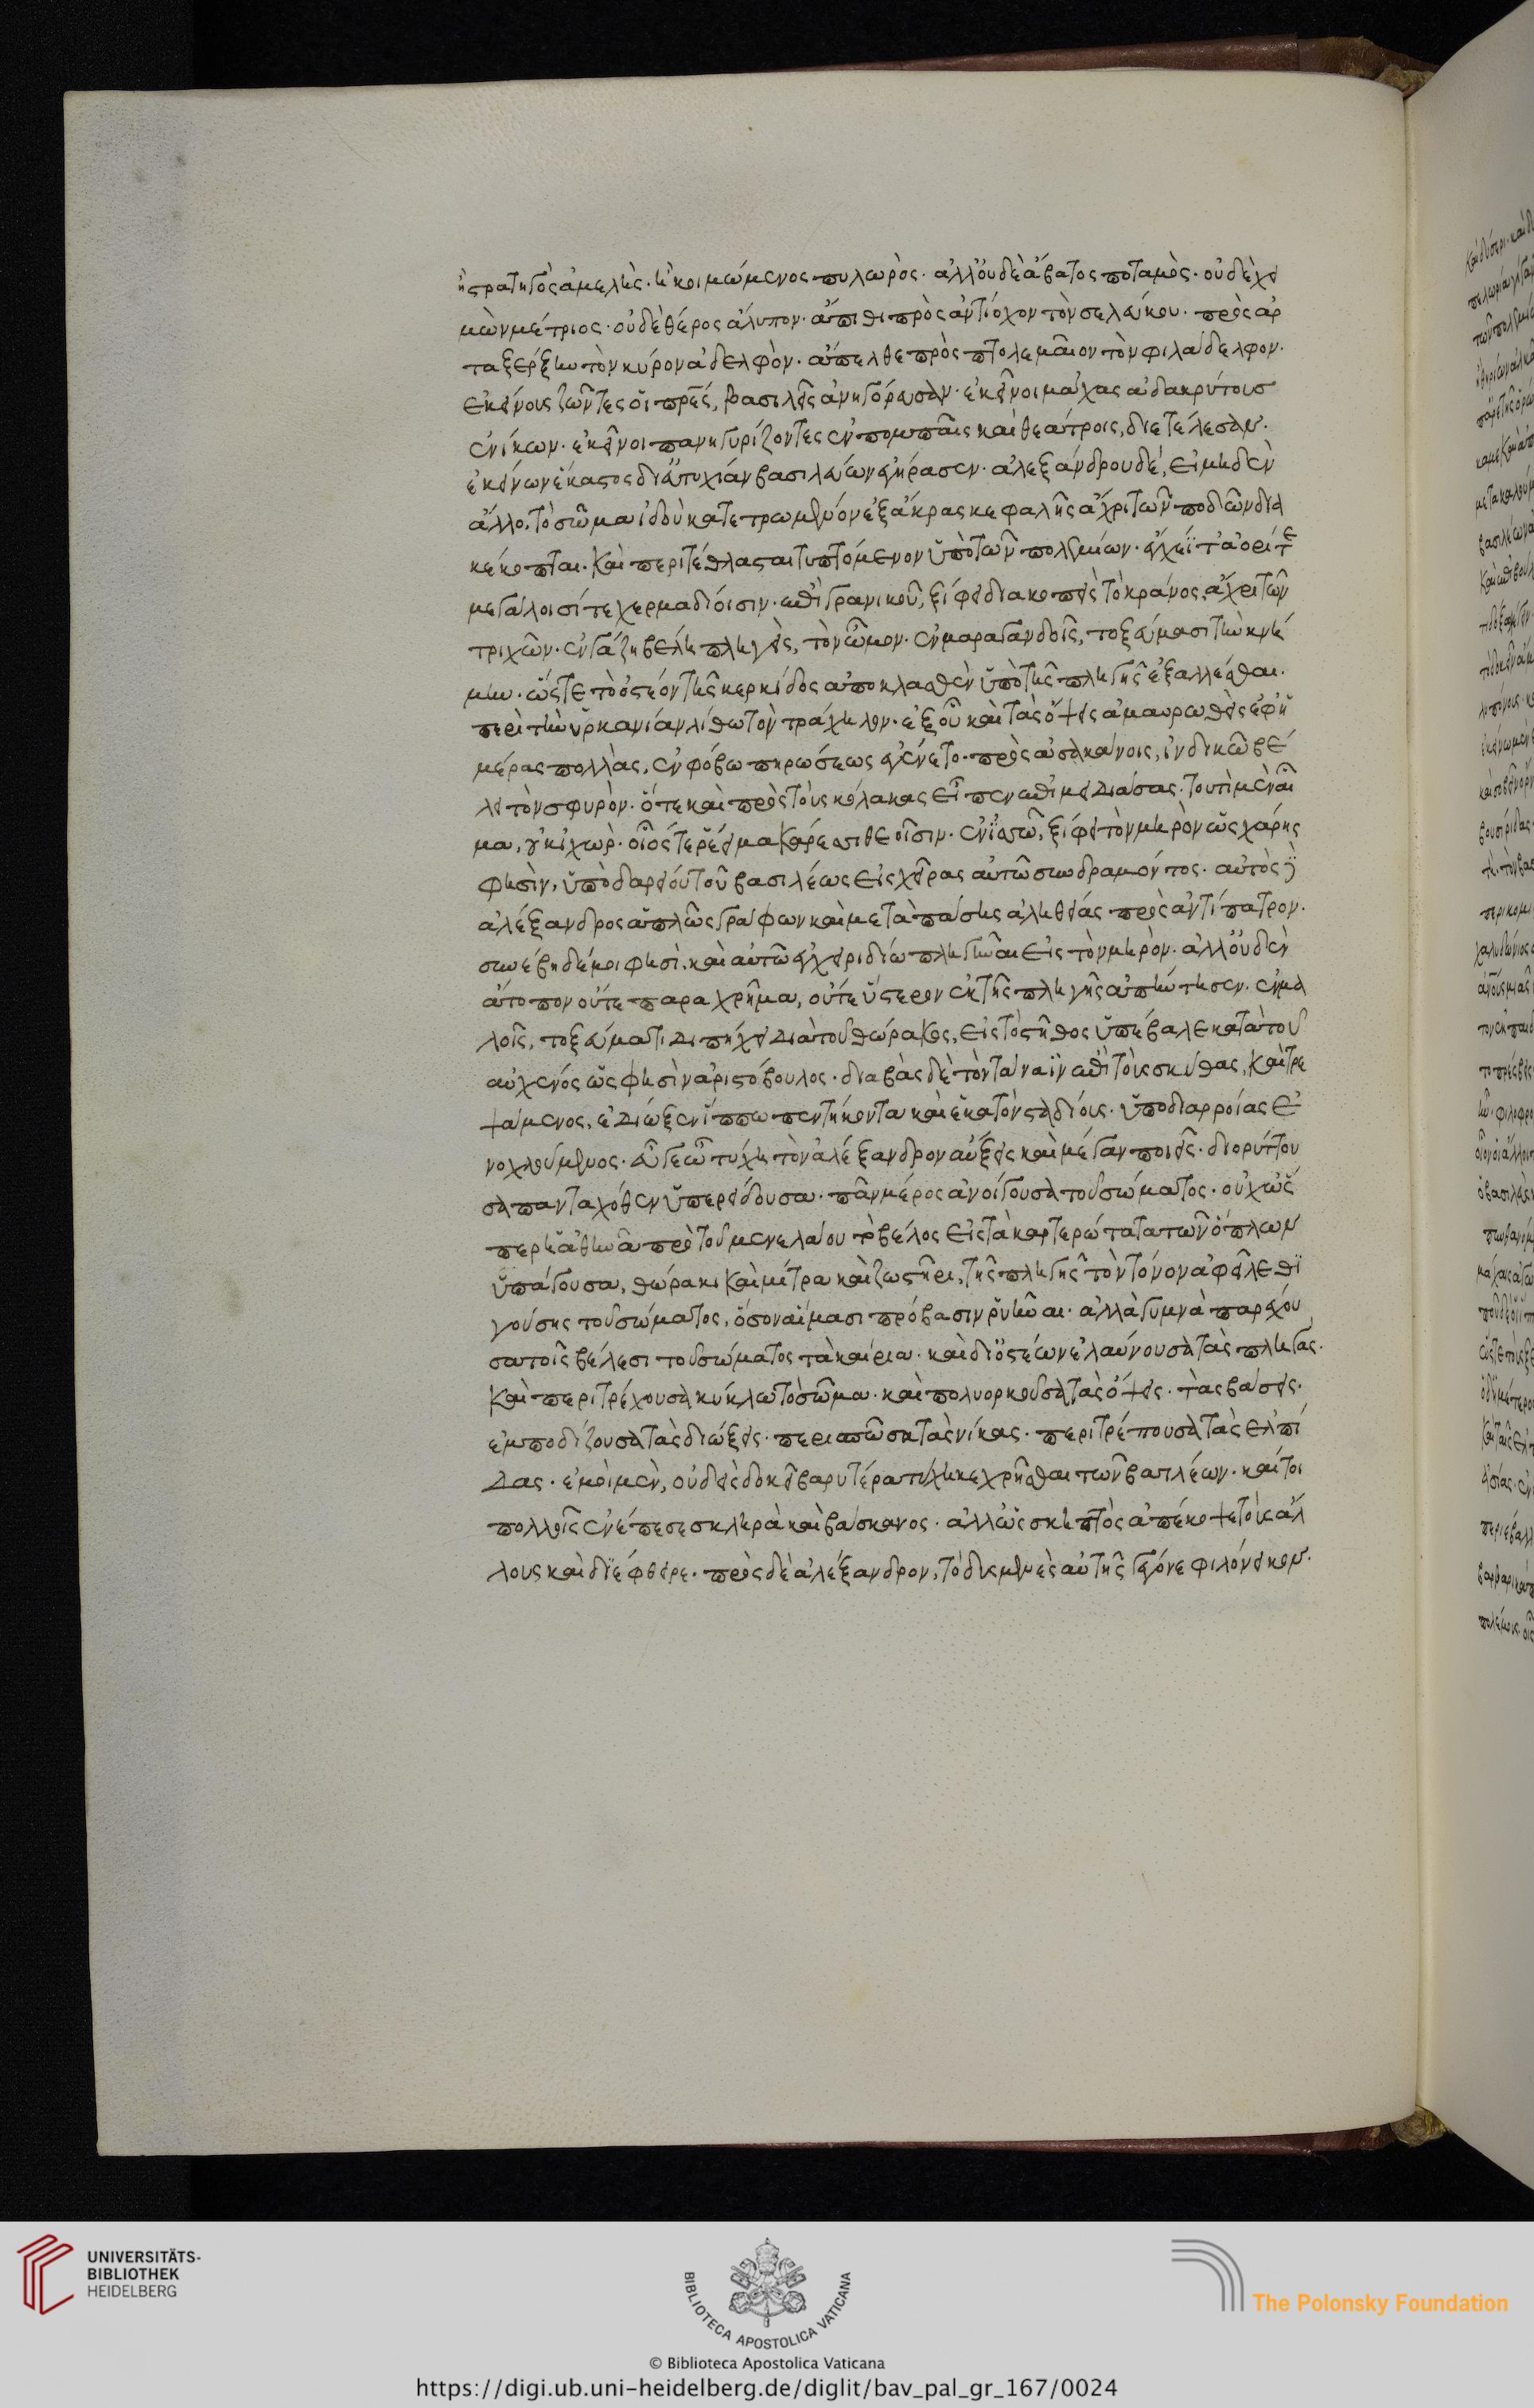 ἢ στρατηγὸς ἀμελὴς. ἢ κοιμώμενος πυλωρὸς. ἀλλ' οὐδὲ ἄβατος ποταμὸς. οὐδὲ χει
μὼν μέτριος. οὐδὲ θέρος ἄλυπον. ἄπιθι πρὸς ἀντίοχον τὸν σελεύκου. πρὸς ἀρ
ταξέρξην τὸν κύρου ἀδελφὸν. ἄπελθε πρὸς πτολεμαῖον τὸν φιλάδελφον.
ἐκείνους ζῶντες οἱ πρες, βασιλεῖς ἀνηγόρευσαν. ἐκεῖνοι μάχας ἀδακρύτους
ἐνίκων. ἐκεῖνοι πανηγυρίζοντες ἐν πομπαῖς καὶ θεάτροις, διετέλεσαν.
ἐκείνων ἕκαστος δι' εὐτυχίαν βασιλεύων ἐγήρασεν. ἀλεξάνδρου δὲ, εἰ μηδὲν
ἄλλο, τὸ σῶμα ἰδοὺ κατετρωμένον ἐξ ἄκρας κεφαλῆς ἄχρι τῶν ποδῶν δια
κέκοπται. καὶ περιτέθλασται τυπτόμενον ὑπὸ τῶν πολεμίων. ἔγχεΐ τ' ἄορί τε
μεγάλοισί τε χερμαδίοισιν. ἐπὶ γρανικοῦ, ξίφει διακοπεὶς τὸ κράνος, ἄχρι τῶν
τριχῶν. ἐν γάζῃ βέλει πληγεὶς, τὸν ὦμον. ἐν μαραγάνδοις, τοξεύματι τὴν κνή
μην. ὥστε τὸ ὀστέον τῆς κερκίδος ἀποκλασθὲν ὑπὸ τῆς πληγῆς ἐξαλλέσθαι.
περὶ τὴν ὑρκανίαν λίθω τὸν τράχηλον. ἐξ οὗ καὶ τὰς ὄψεις ἀμαυρωθεὶς ἐφ' ἡ
μέρας πολλὰς, ἐν φόβω πηρώσεως ἐγένετο. πρὸς ἀσσακάνοις, ἰνδικῶ βέ
λει τὸν σφυρὸν. ὅτε καὶ πρὸς τοὺς κόλακας εἶπεν ἐπιμειδιάσας. τουτὶ μὲν αἷ
μα, οὐκ ἰχὼρ. οἷός τε ῥέει μακάρεσσι θεοῖσιν. ἐν ἰσσῶ, ξίφει τὸν μηρὸν ὡς χάρης
φησὶν, ὑπὸ δαρείου τοῦ βασιλέως εἰς χεῖρας αὐτῶ συνδραμόντος. αὐτὸς δὲ
ἀλέξανδρος ἁπλῶς γράφων καὶ μετὰ πάσης ἀληθείας πρὸς ἀντίπατρον.
συνέβη δέ μοι φησὶ, καὶ αὐτῶ ἐγχειριδίω πληγῆναι εἰς τὸν μηρὸν. ἀλλ' οὐδὲν
ἄτοπον οὔτε παραχρῆμα, οὔτε ὕστερον ἐκ τῆς πληγῆς ἀπήντησεν. ἐν μα
λοῖς, τοξεύματι διπήχει διὰ τοῦ θώρακος, εἰς τὸ στῆθος ὑπέβαλε κατὰ τοῦ
αὐχενός ὥς φησὶν ἀριστόβουλος. διαβὰς δὲ τὸν τάναϊν ἐπὶ τοὺς σκύθας, καὶ τρε
ψάμενος, ἐδίωξεν ἵππω πεντήκοντα καὶ ἑκατὸν σταδίους. ὑπὸ διαρροίας ἐ
νοχλούμενος. εὖ γε ὦ τύχη τὸν ἀλέξανδρον αὔξεις καὶ μέγαν ποιεῖς. διορύττου
σα πανταχόθεν ὑπερείδουσα. πᾶν μέρος ἀνοίγουσα τοῦ σώματος. οὐχ ὥσ
περ ἡ ἀθηνᾶ πρὸ τοῦ μενελάου τὸ βέλος εἰς τὰ καρτερώτατα τῶν ὅπλων
ὑπάγουσα, θώρακι καὶ μίτρα καὶ ζωστῆρι, τῆς πληγῆς τὸν τόνον ἀφεῖλε θι
γούσης τοῦ σώματος, ὅσον αἵματι πρόβασιν ῥυῆναι. ἀλλὰ γυμνὰ παρέχου
σα τοῖς βέλεσι τοῦ σώματος τὰ καίρια. καὶ δι' ὀστέων ἐλαύνουσα τὰς πληγὰς.
καὶ περιτρέχουσα κύκλω τὸ σῶμα. καὶ πολιορκοῦσα τὰς ὄψεις. τὰς βάσεις.
ἐμποδίζουσα τὰς διώξεις. περισπῶσα τὰς νίκας. περιτρέπουσα τὰς ἐλπί
δας. ἐμοὶ μὲν, οὐδεὶς δοκεῖ βαρυτέρα τύχη κεχρῆσθαι τῶν βασιλέων. καίτοι
πολλοῖς ἐνέπεσε σκληρὰ καὶ βάσκανος. ἀλλ' ὡς σκηπτὸς ἀπέκοψε τοὺς ἄλ
λους καὶ διέφθειρε. πρὸς δὲ ἀλέξανδρον, τὸ δυσμενὲς αὐτῆς γέγονε φιλόνεικον.
UNIVERSITÄTS-
BIBLIOTHEK
HEIDELBERG
BIBLIOTECA APOSTOLICA VATICANA
The Polonsky Foundation
© Biblioteca Apostolica Vaticana
https://digi.ub.uni-heidelberg.de/diglit/bav_pal_gr_167/0024